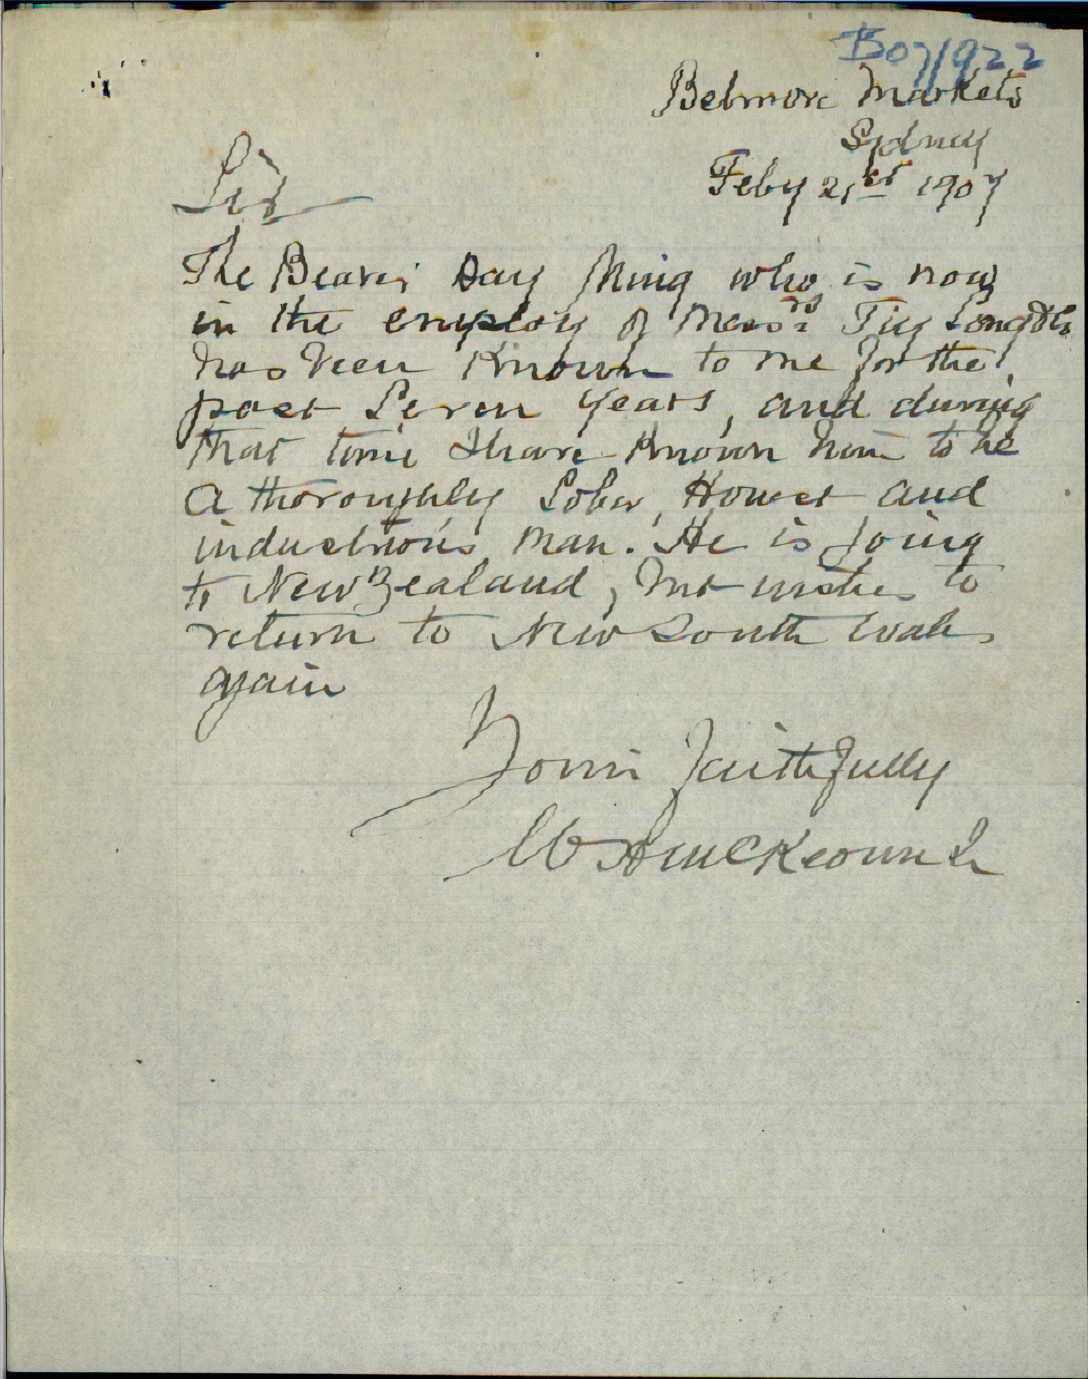 B07/922
Belmore Markets
Sydney
Feby 21st 1907
Sir
The Bearer Day Ming who is now
in the employ of Messrs Tiy Long & Co
has been Known to me for the
past Seven years, and during
that time I have Known him to be
a thoroughly Sober, Honest and
industrious man. He is going
to New Zealand, but wishes to
return to New South Wales
again
Yours faithfully
McKeown Jr